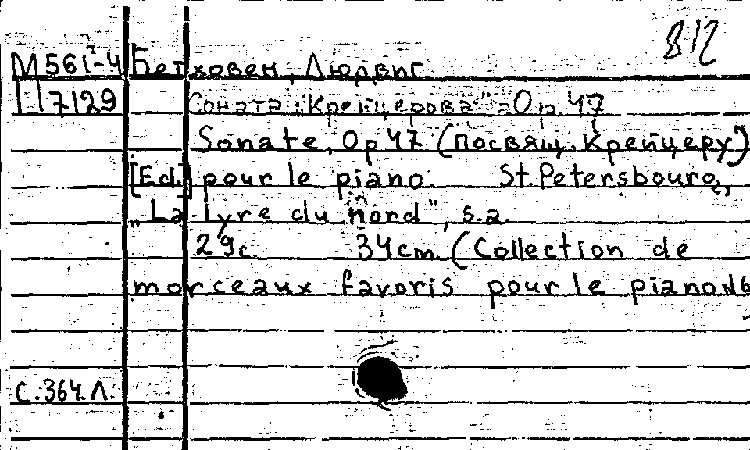 812
М 561-4 Бетховен, Людвиг
Н 7129 Соната "Крейцерова" Op. 47
Sonate, Op 47 (посвящ. Крейцеру)
[Ed.] pour le piano. St. Petersbourg,
„La lyre du Nord", s.a.
29с 34cm. (Collection de
morceaux favoris pour le piano №6
С.364.Л.